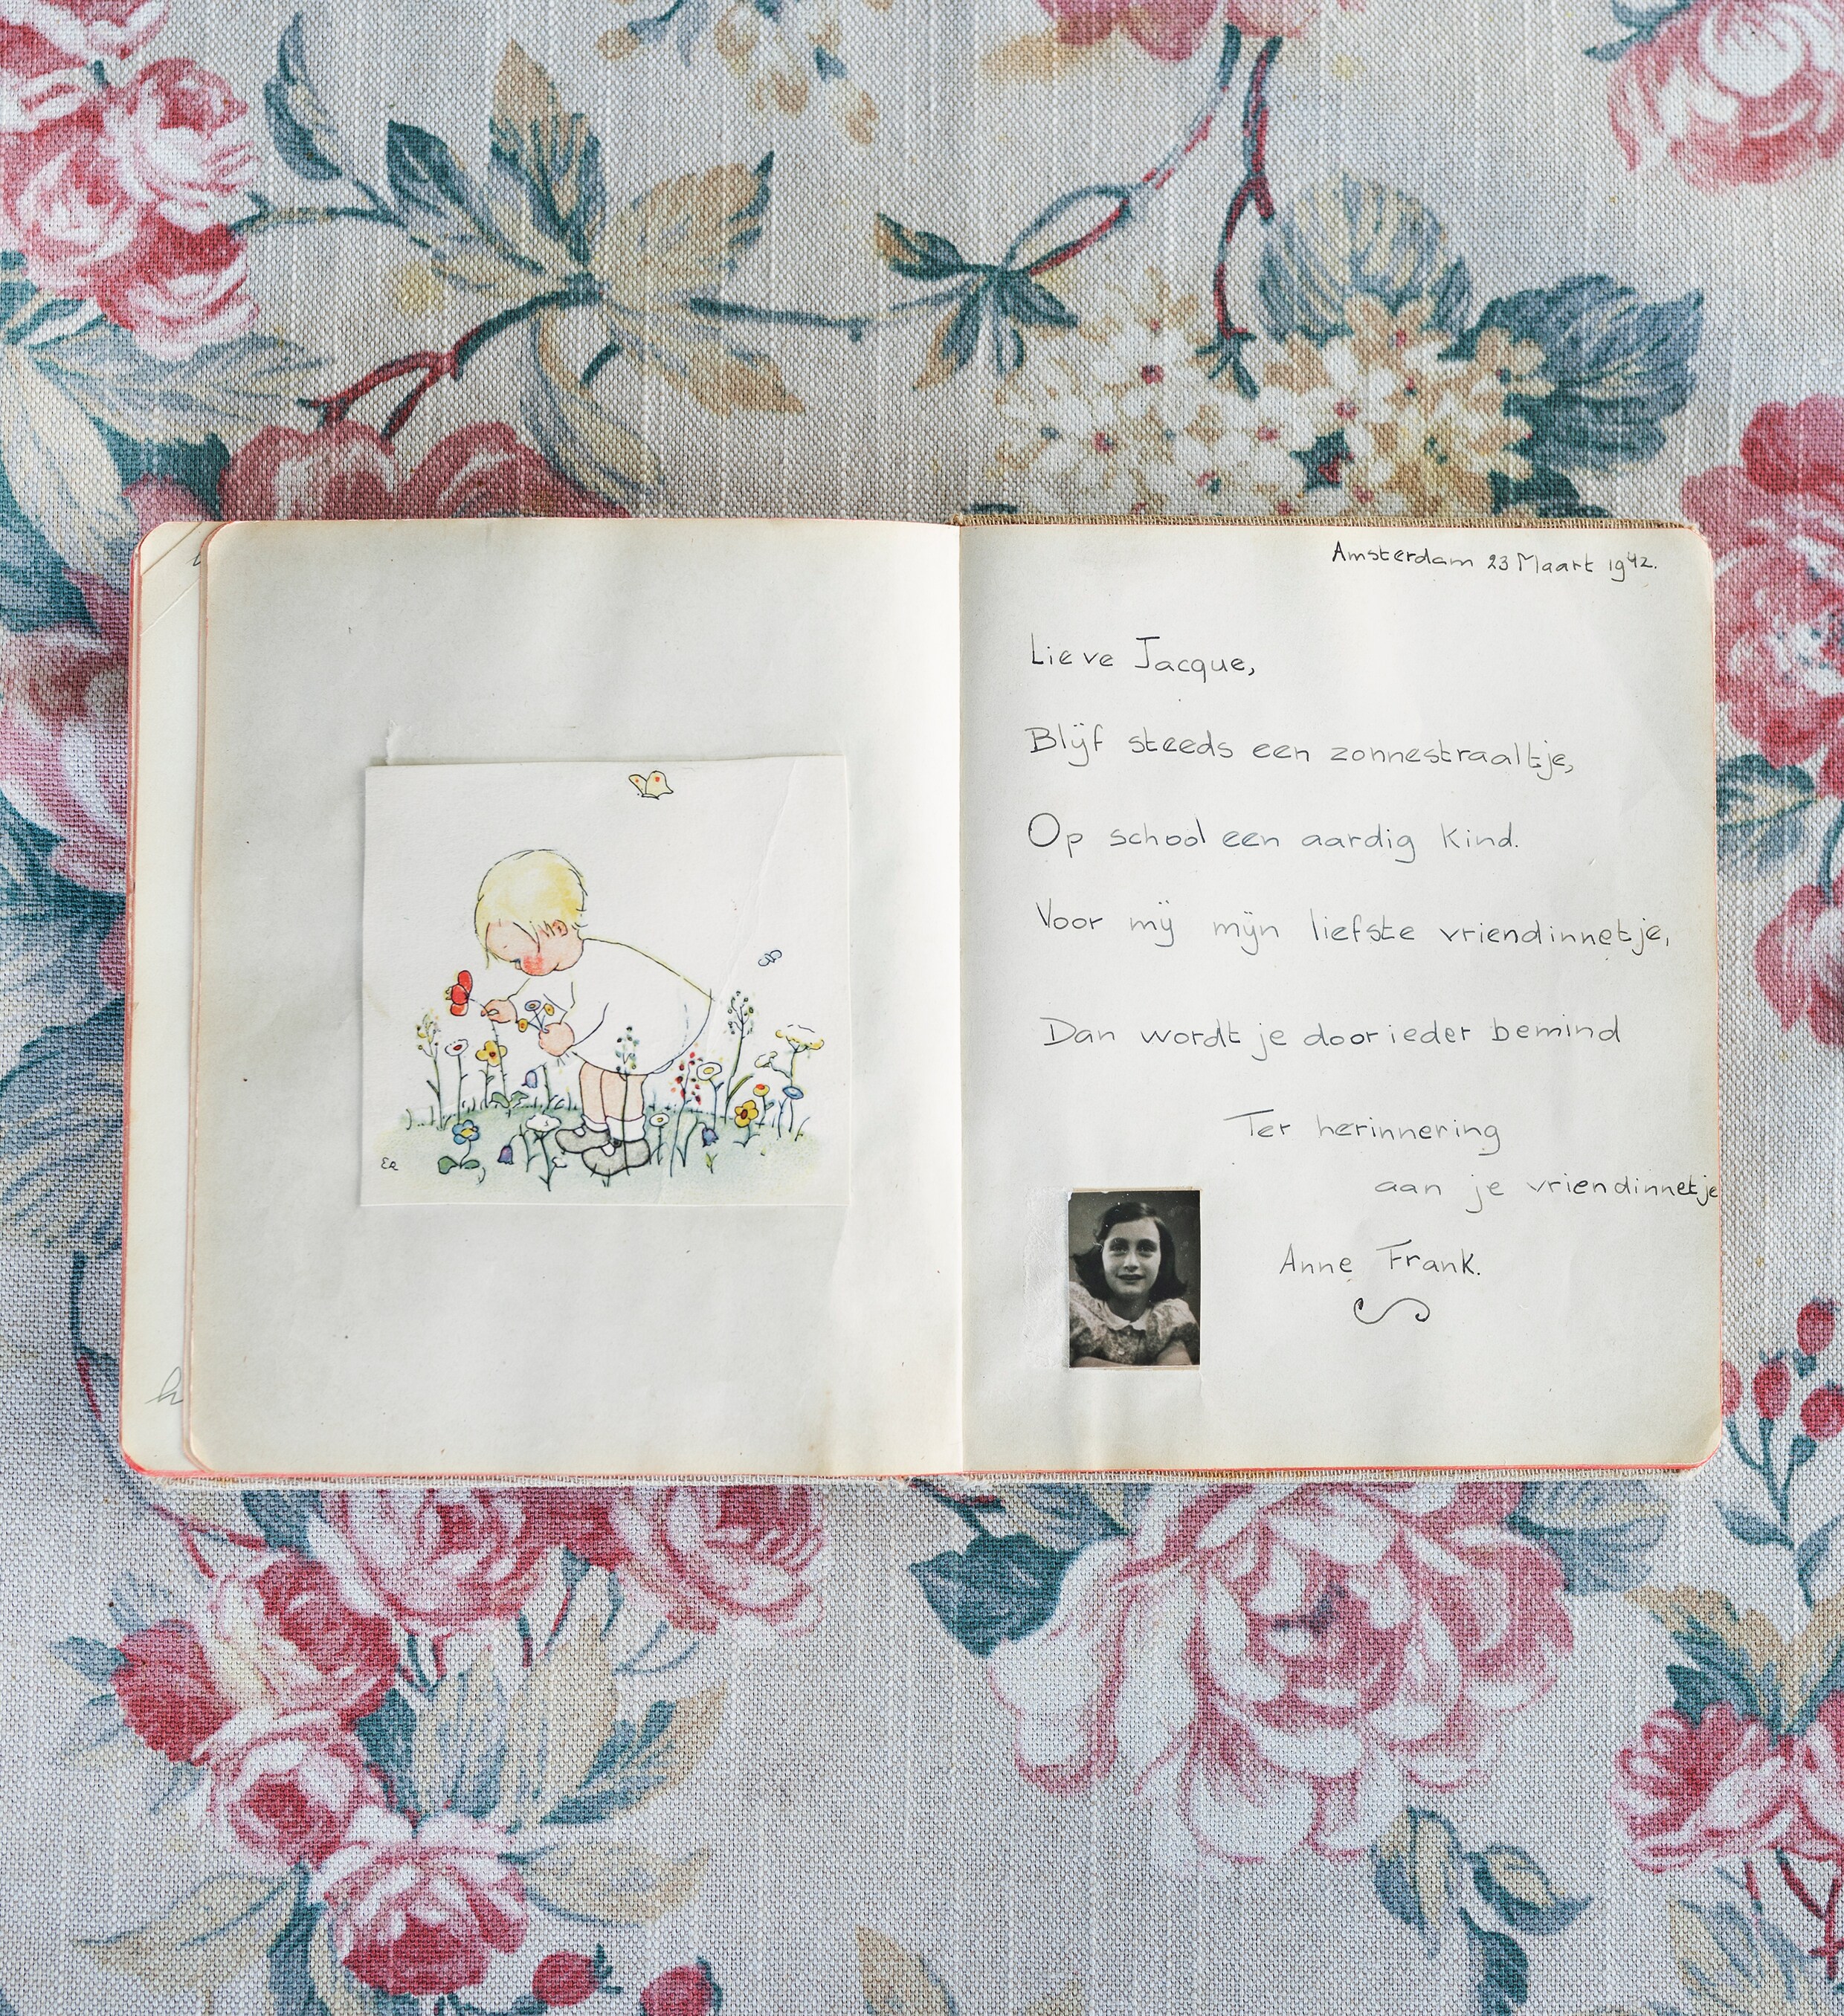 Amsterdam 23 Maart 1942.
Lieve Jacque,
Blijf steeds een zonnestraaltje,
Op school een aardig kind.
Voor mij mijn liefste vriendinnetje,
Dan wordt je door ieder bemind
Ter herinnering
aan je vriendinnetje
Anne Frank.